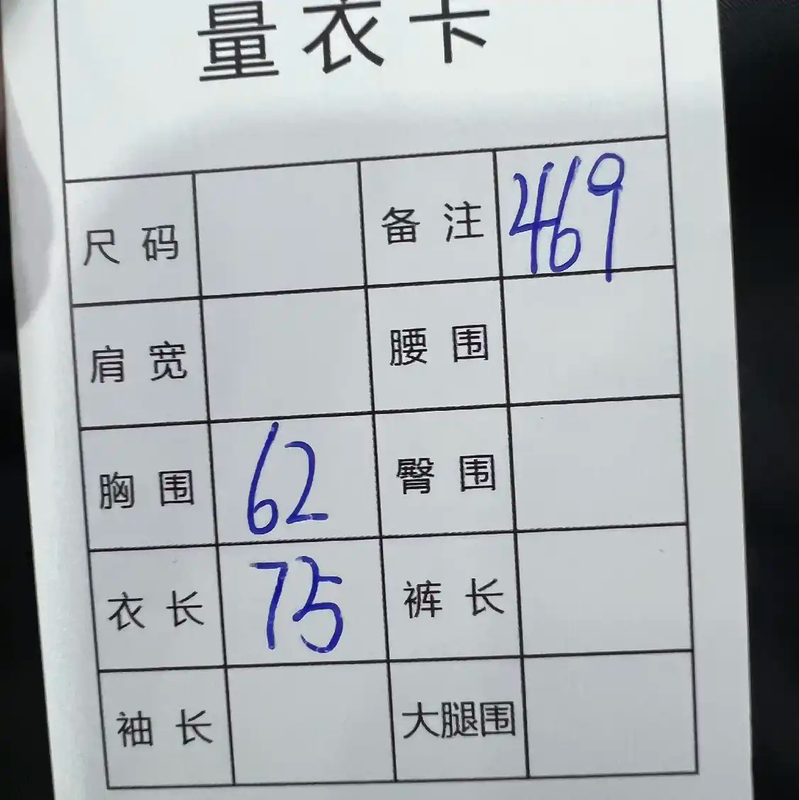 量衣卡
尺码 备注 469
肩宽 腰围
胸围 62 臀围
衣长 75 裤长
袖长 大腿围